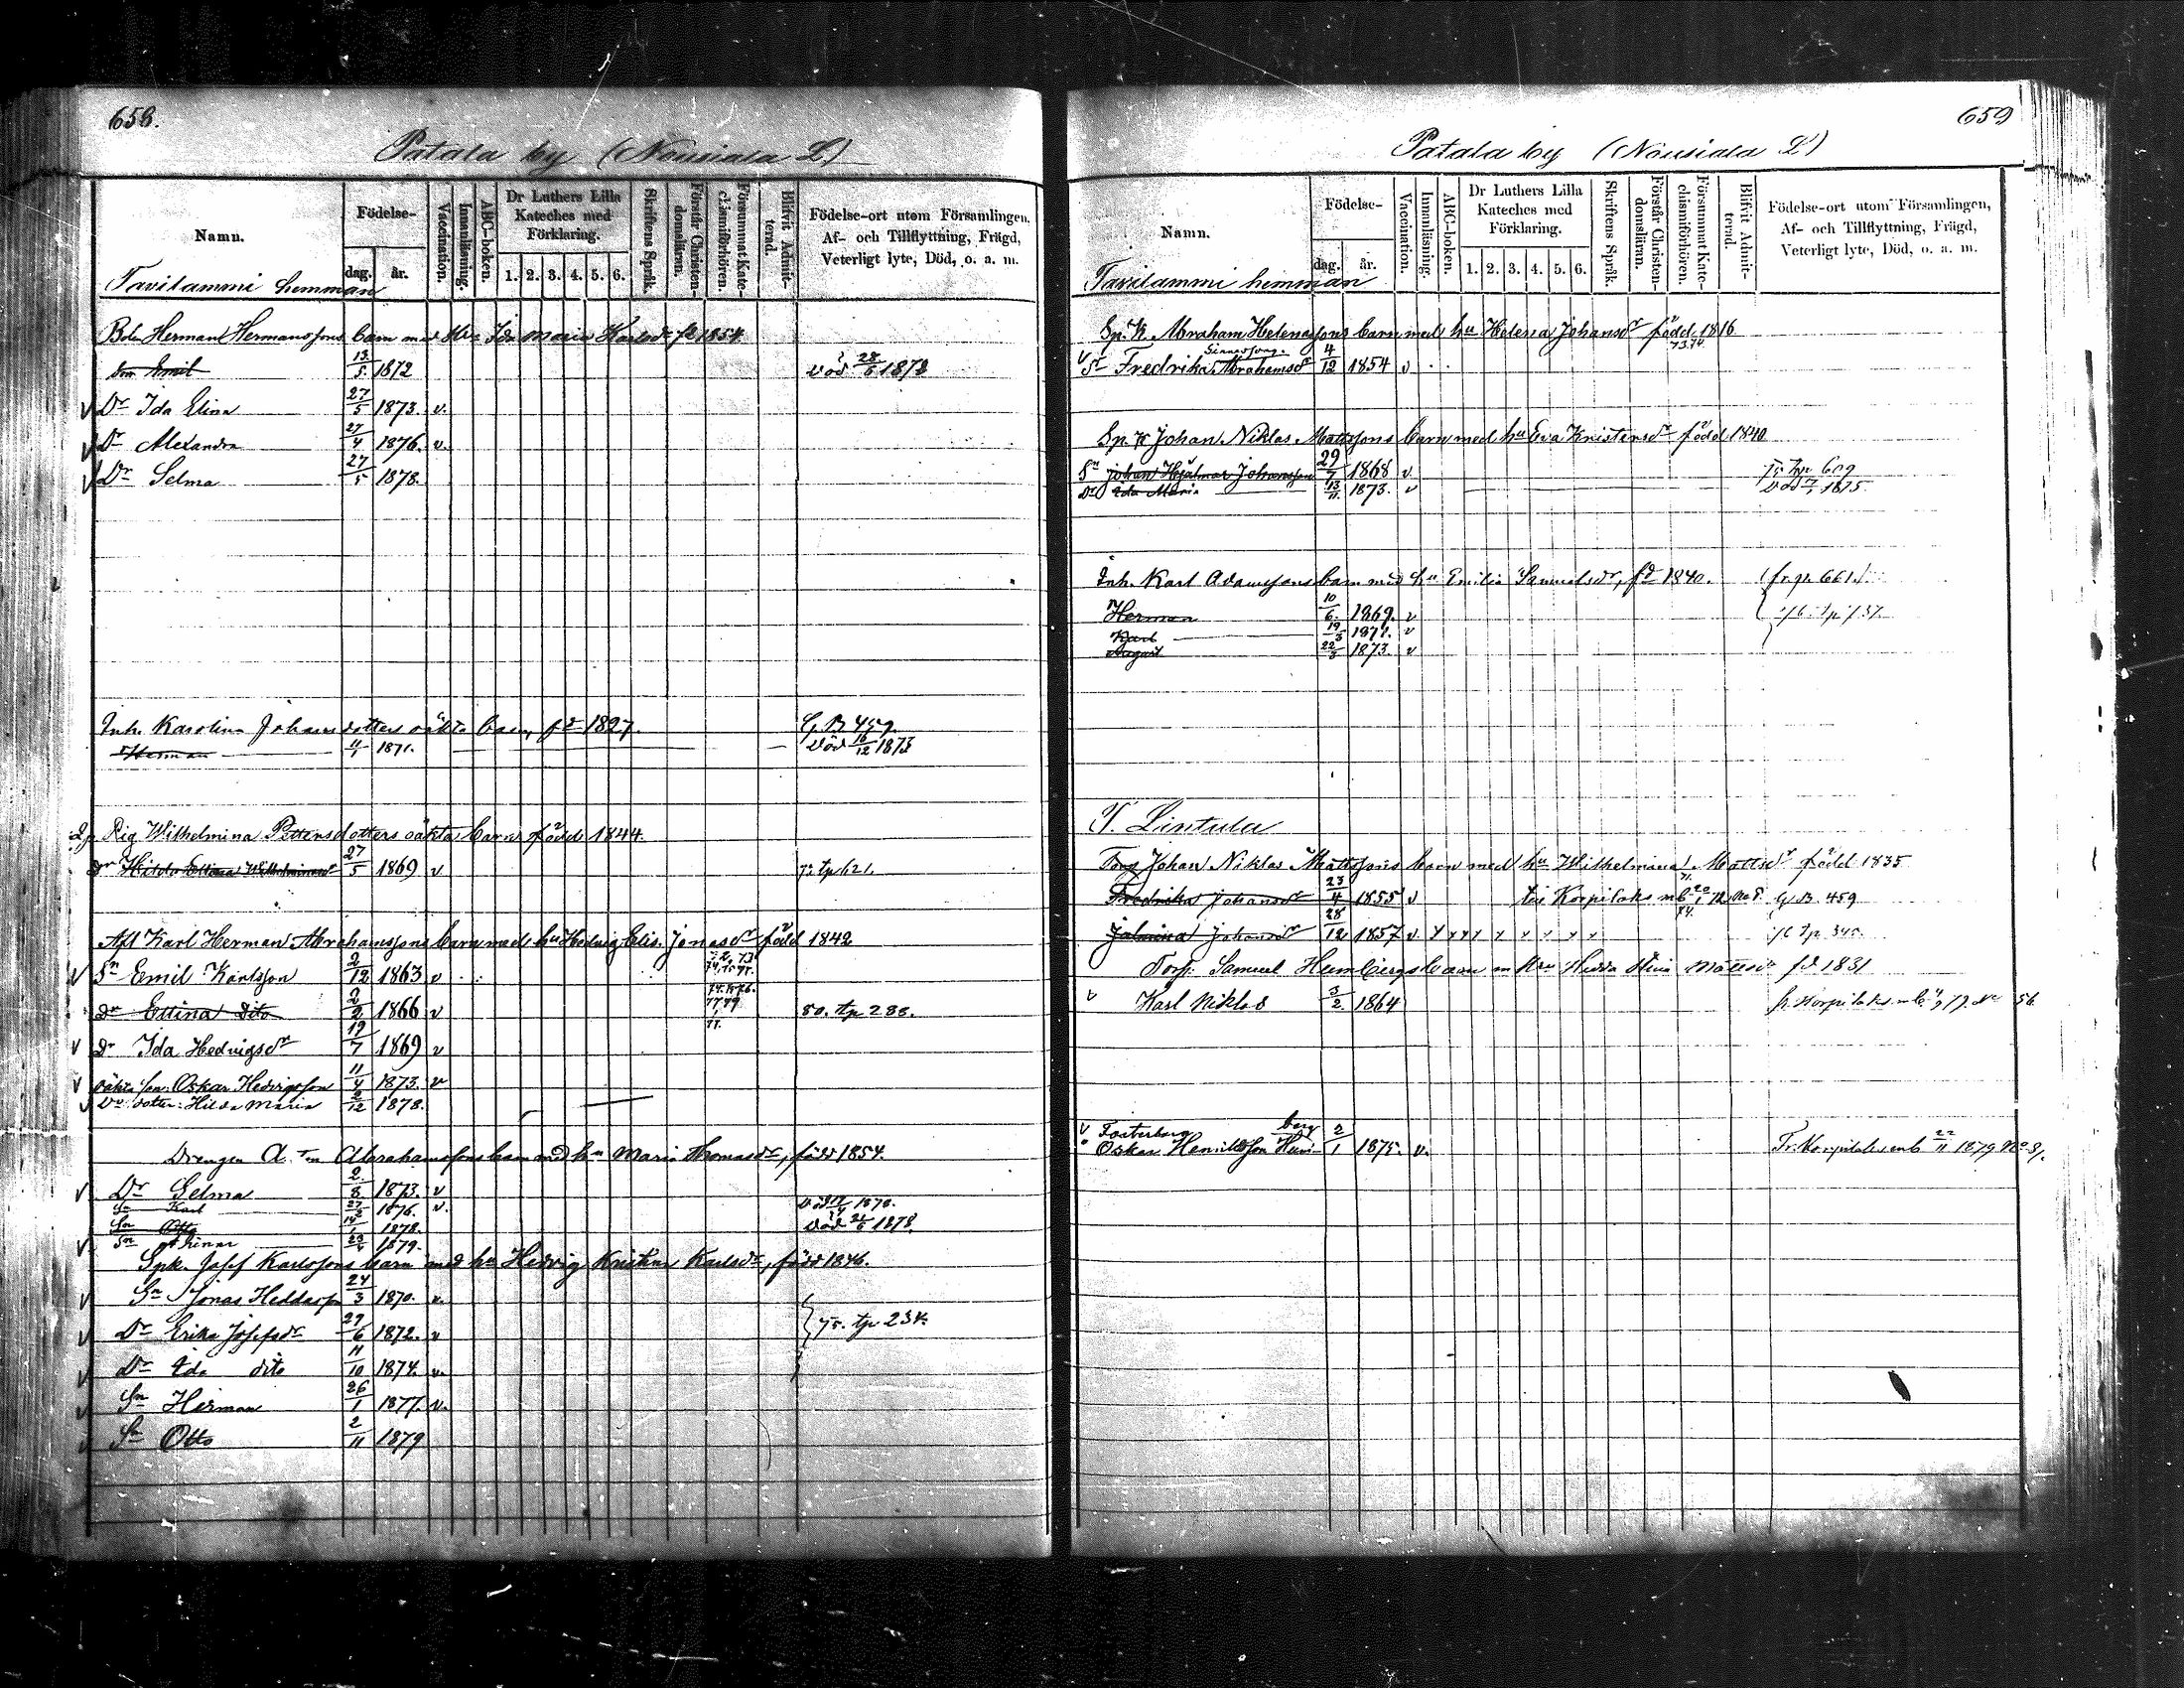 658.
Patala by (Nousiala L)
Namn.
Födelse-
dag.
år.
Vaccination.
Innanläsning.
ABC-boken.
Dr Luthers Lilla
Kateches med
Förklaring.
1. 2. 3. 4. 5. 6.
Skriftens Språk.
Förstår Christen-
domsläran.
Försummat Kate-
chismiförhören.
Blifvit Admit-
terad.
Födelse-ort utom Församlingen,
Af- och Tillflyttning, Frägd,
Veterligt lyte, Död, o. a. m.
Tavilammi hemman
Herman Hermanssons barn med Ida Maria Karlsdr fd 1854.
Son Emil 13/5 1872 död 28/6 1878
v Dr Ida Elina 27/5 1873. v.
v Dr Alexandra 27/4 1876. v.
v Dr Selma 27/5 1878.
Inh. Karolina Johansdotters oäkta barn, fd 1827. C. B. 459.
Herman 11/1 1871. död 16/12 1873
Pig Wilhelmina Pettersdotters oäkta barn född 1844.
Dr Hilda Wilhelminasdr 27/5 1869 v tp 621.
Karl Herman Abrahamssons barn med hu Hedvig Elis. Jonasdr född 1842
v Sn Emil Karlsson 2/12 1863 v
Dr Ettina Dito 2/2 1866 v 80. tp 288.
v Dr Ida Hedvigsdr 19/7 1869 v
v oäkta son: Oskar Hedvigsson 11/4 1873. v
v Do dotter: Hilda Maria 2/12 1878.
Drengen A. Abrahamssons barn med hu Maria Thomasdr, född 1854.
v Dr Selma 2/8 1873. v
Sn Karl 1876. v. död
Sn Otto 14/1 1878. död 1878
v Sn 23/4 1879.
Spk. Josef Karlssons barn med hu Hedvig Kristina Karlsdr, född 1846.
v Sn Jonas Heddasson 24/3 1870. v.
v Dr Erika Josefsdr 29/6 1872. v 75. tp 234.
v Dr Ida dito 11/10 1874. v.
v Sn Herman 26/1 1877. v.
v Sn Otto 2/11 1879
659
Patala by (Nousiala L)
Namn.
Födelse-
dag.
år.
Vaccination.
Innanläsning.
ABC-boken.
Dr Luthers Lilla
Kateches med
Förklaring.
1. 2. 3. 4. 5. 6.
Skriftens Språk.
Förstår Christen-
domsläran.
Försummat Kate-
chismiförhören.
Blifvit Admit-
terad.
Födelse-ort utom Församlingen,
Af- och Tillflyttning, Frägd,
Veterligt lyte, Död, o. a. m.
Tavilammi hemman
Sp. K. Abraham Helenassons barn med hu Helena Johansdr född 1816
73.74.
v Dr Fredrika Abrahamsdr 4/12 1854 v
Sp. K Johan Niklas Mattssons barn med hu Eva Kristersdr född 1840
Sn Johan Hjalmar Johansson 29/7 1868 v 75 tp 609
Dr Ida Maria 13/11 1873. v död 1875.
Inh. Karl Adamssons barn med hu Emilia Samuelsdr, fd 1840. (fr. p. 661.)
Herman 10/6 1869. v
Karl 19/3 1871. v
August 22/3 1873. v
T. Lintula
Torp Johan Niklas Mattssons barn med hu Wilhelmina Mattsdr född 1835
Fredrika Johansdr 23/4 1855 v till Korpilaks C. B. 459
Jalmina Johansdr 28/12 1857 v. x x x x x x x x tp 345.
Torp. Samuel Heimbergs barn m hu Hedda Stina Mattsdr fd 1831
v Karl Niklas 3/2 1864 fr. Korpilaks 56
v Fosterbarn
Oskar Heimberg 2/1 1875. v. Fr. Korpilaks mb 22/11 1879 No 31.